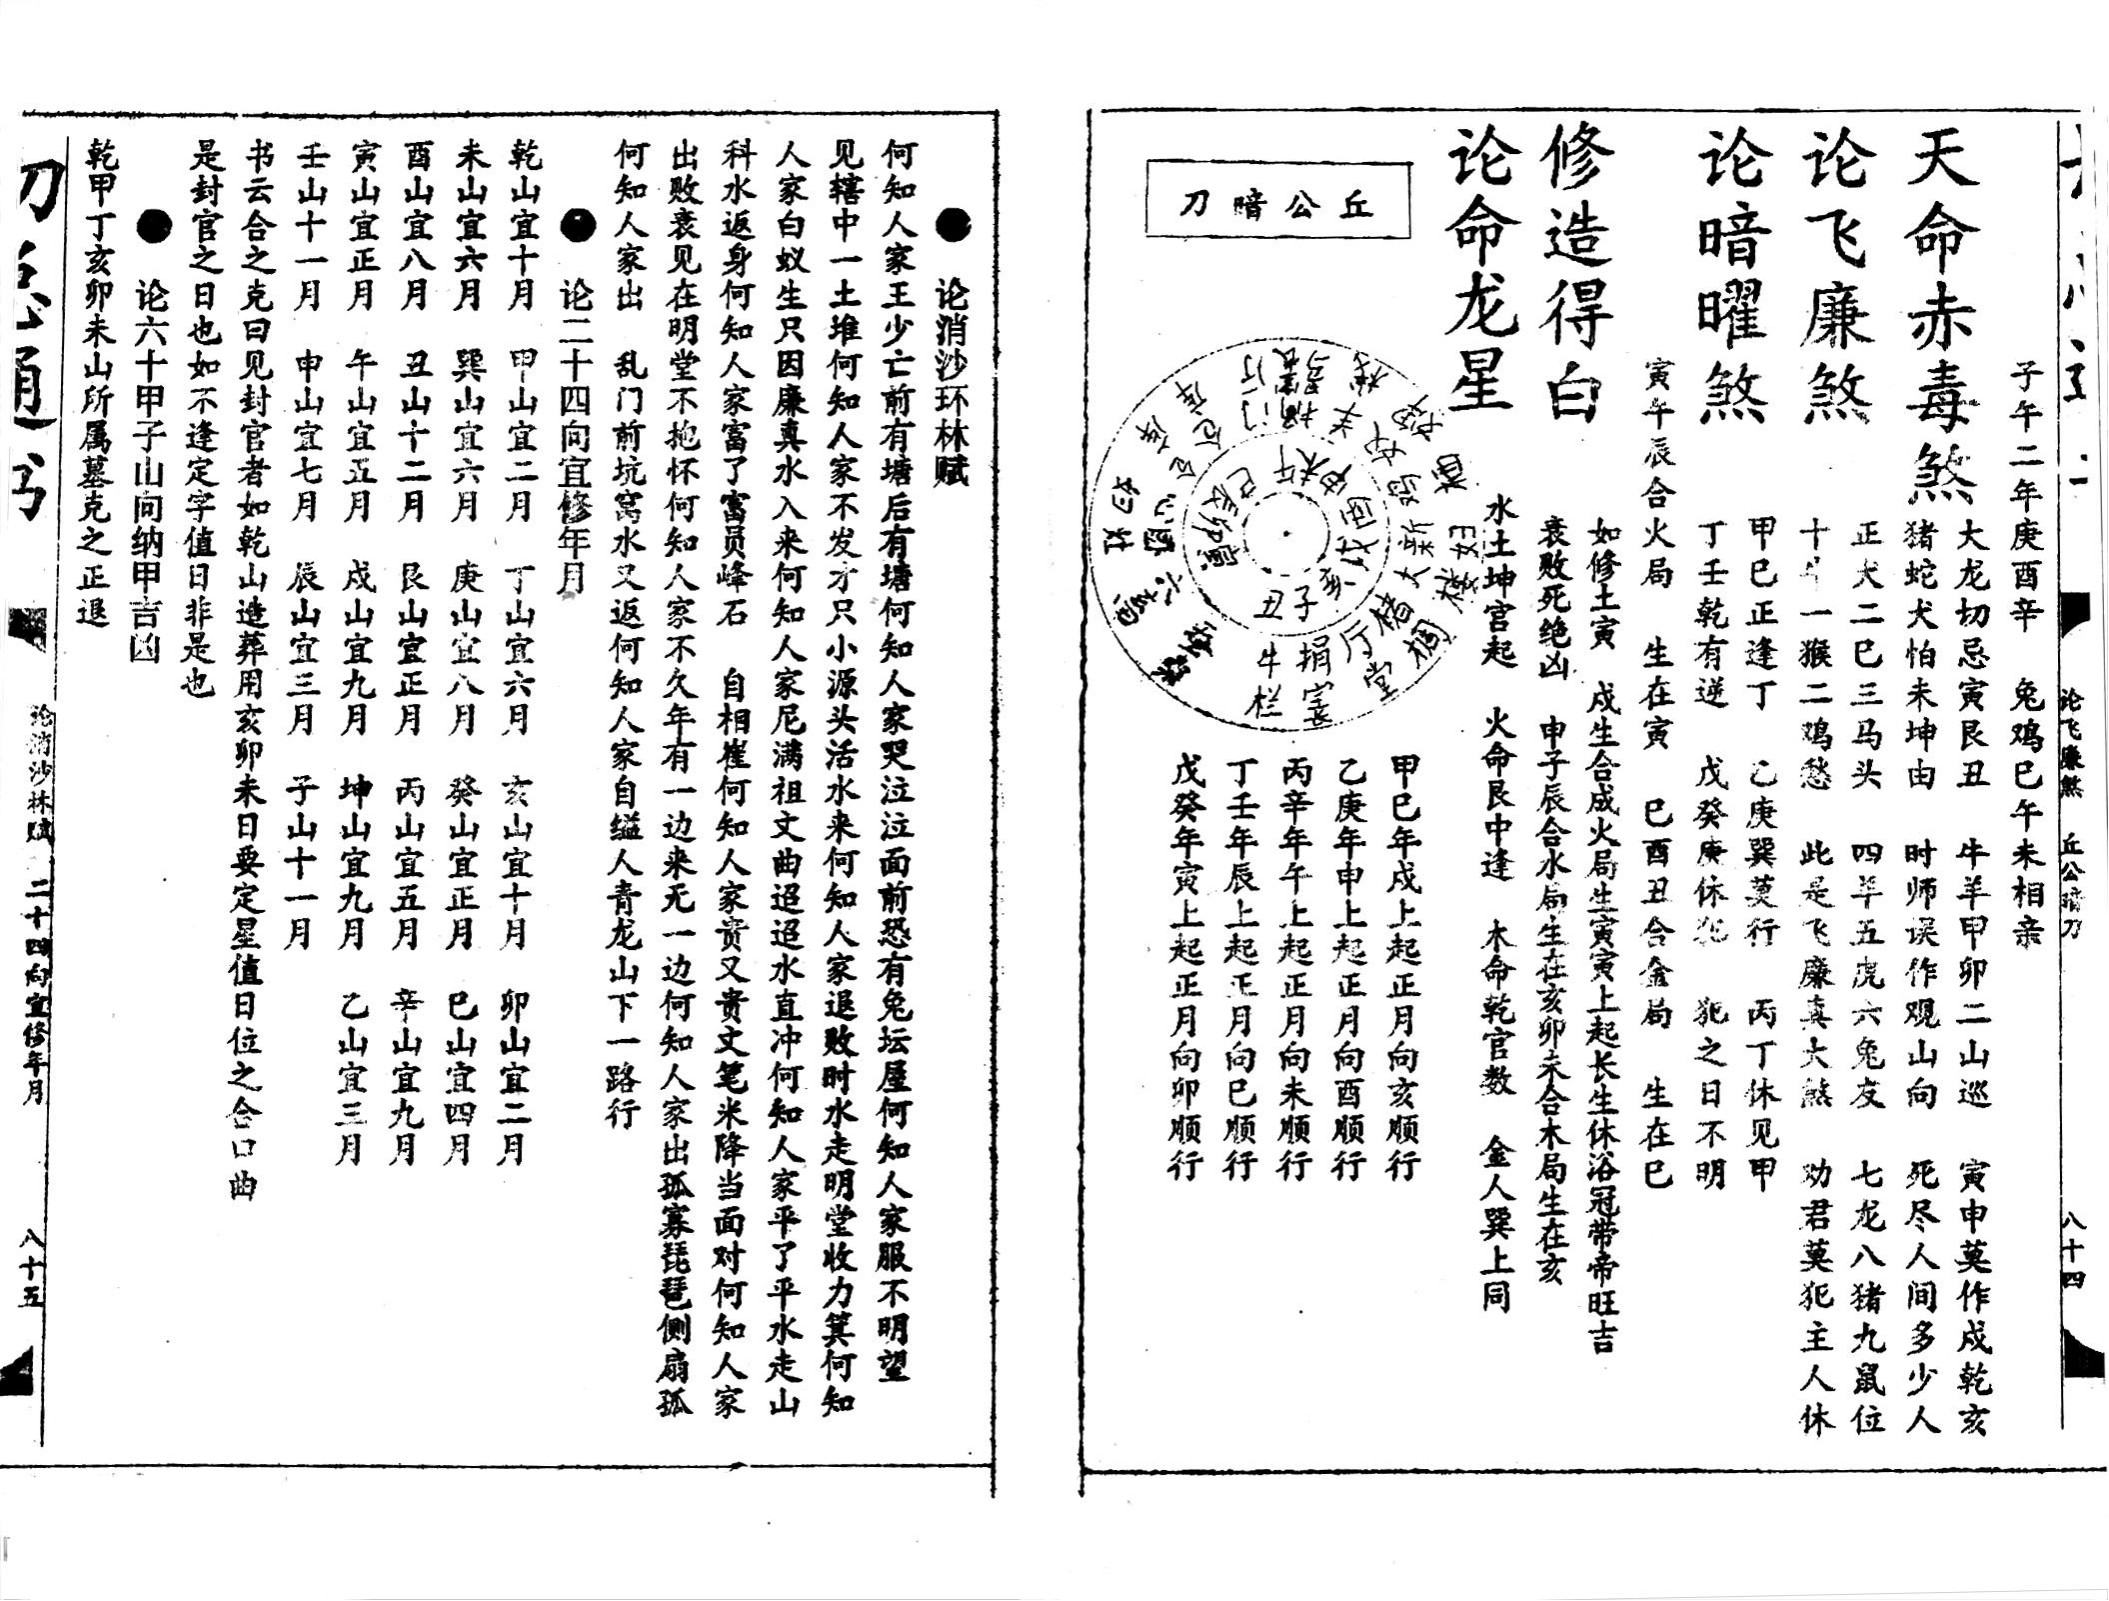 子午二年庚酉辛　兔鸡巳午未相亲
天命赤毒煞
大龙切忌寅艮丑　牛羊甲卯二山巡　寅申莫作戍乾亥
猪蛇犬怕未坤由　时师误作观山向　死尽人间多少人
论飞廉煞
正犬二巳三马头　四羊五虎六兔友　七龙八猪九鼠位
十牛一猴二鸡愁　此是飞廉真大煞　劝君莫犯主人休
论暗曜煞
甲巳正逢丁　乙庚巽莫行　丙丁休见甲
丁壬乾有逆　戊癸庚休犯　犯之日不明
寅午辰合火局　生在寅　巳酉丑合金局　生在巳
修造得白
如修土寅　戍生合成火局生寅寅上起长生休浴冠带帝旺吉
衰败死绝凶　申子辰合水局生在亥卯未合木局生在亥
论命龙星
水土坤宫起　火命艮中逢　木命乾官数　金人巽上同
丘公暗刀
甲巳年戍上起正月向亥顺行
乙庚年申上起正月向酉顺行
丙辛年午上起正月向未顺行
丁壬年辰上起正月向巳顺行
戊癸年寅上起正月向卯顺行
论飞廉煞　丘公暗刀　八十四
●　论消沙环林赋
何知人家王少亡前有塘后有塘何知人家哭泣泣面前恐有兔坛屋何知人家服不明望
见辖中一土堆何知人家不发才只小源头活水来何知人家退败时水走明堂收力箕何知
人家白蚁生只因廉真水入来何知人家尼满祖文曲迢迢水直冲何知人家平了平水走山
科水返身何知人家富了富员峰石　自相崔何知人家贵又贵文笔米降当面对何知人家
出败衰见在明堂不抱怀何知人家不久年有一边来无一边何知人家出孤寡琵琶侧扇孤
何知人家出　乱门前坑窝水又返何知人家自缢人青龙山下一路行
●　论二十四向宜修年月
乾山宜十月　甲山宜二月　丁山宜六月　亥山宜十月　卯山宜二月
未山宜六月　巽山宜六月　庚山宜八月　癸山宜正月　巳山宜四月
酉山宜八月　丑山十二月　艮山宜正月　丙山宜五月　辛山宜九月
寅山宜正月　午山宜五月　戍山宜九月　坤山宜九月　乙山宜三月
壬山十一月　申山宜七月　辰山宜三月　子山十一月
书云合之克曰见封官者如乾山造葬用亥卯未日要定星值日位之合口曲
是封官之日也如不逢定字值日非是也
●　论六十甲子山向纳甲吉凶
乾甲丁亥卯未山所属墓克之正退
论消沙林赋　二十四向宜修年月　八十五